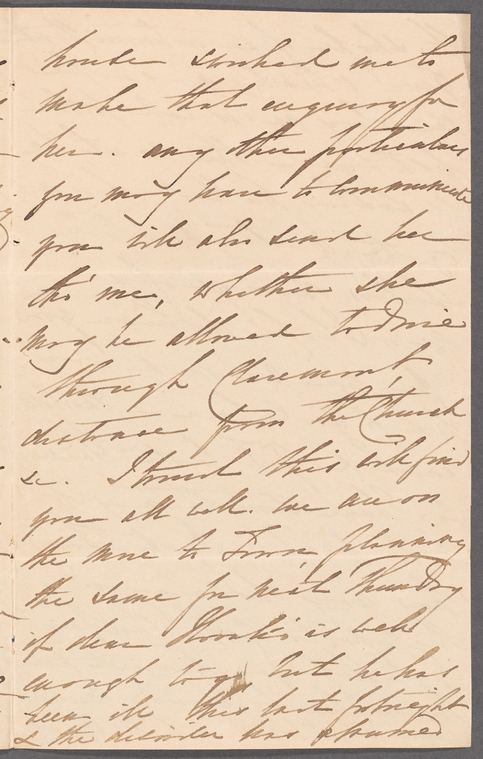 house & wished me to
make that enquiry for
her. any other particulars
you may have to communicate
you will also send her
thro' me, whether she
may be allowed to drive
through Claremont,
distance from the Church
&c. I trust this will find
you all well. we are on
the move to Town, planning
the same for next Thursday
if dear Horatio is well
enough to go but he has
been ill this last fortnight
& the disorder has assumed